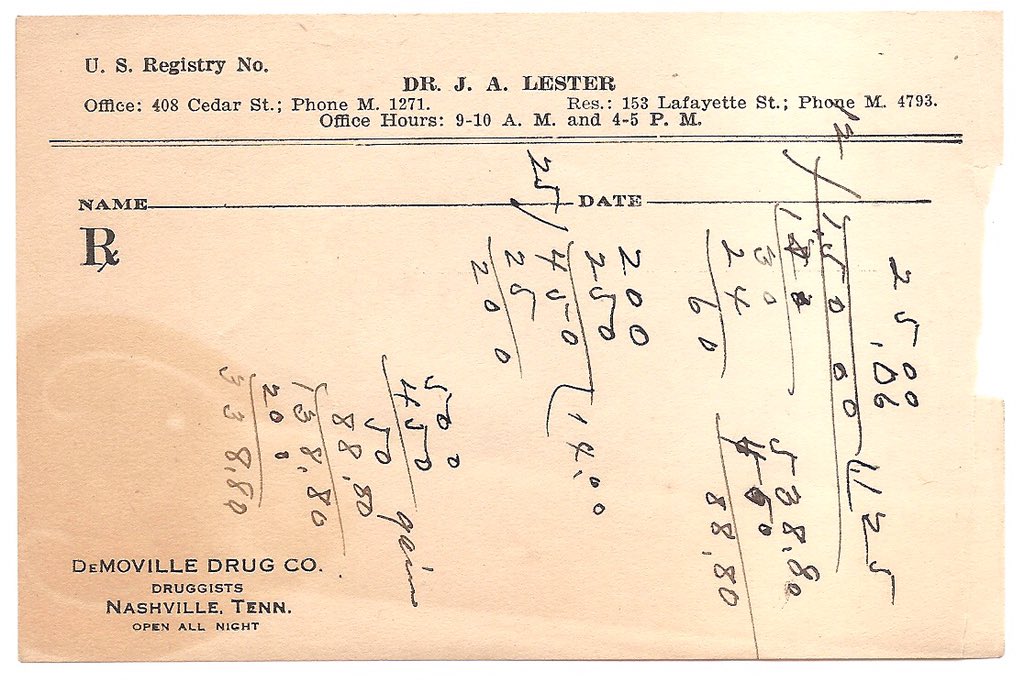 U. S. Registry No.
DR. J. A. LESTER
Office: 408 Cedar St.; Phone M. 1271. Res.: 153 Lafayette St.; Phone M. 4793.
Office Hours: 9-10 A. M. and 4-5 P. M.
NAME DATE
℞
2500
.06
1.50 00
12
30
2460
538.80
450
88.80
200
250
25 / 450
14.00
25
200
500
450
50 gain
88.80
138.80
200
338.80
DEMOVILLE DRUG CO.
DRUGGISTS
NASHVILLE, TENN.
OPEN ALL NIGHT